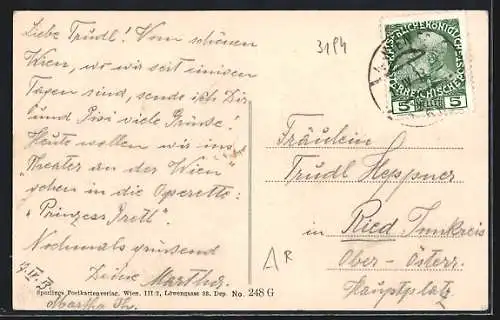 Liebe Trudl! Vom schönen
Wien, wo wir seit einigen
Tagen sind, sende ich Dir
und Pisi viele Grüsse!
Heute wollen wir ins
"Theater an der Wien"
gehen in die Operette:
"Prinzess Gretl".
Nochmals grüssend
Deine Martha.
Martha
Sperlings Postkartenverlag, Wien, III/2, Löwengasse 28. Dep. No. 248 G
3194
5 HELLER 5
Fräulein
Trudl Heppner
in Ried Innkreis
Ober-Österr.
Hauptplatz
AR